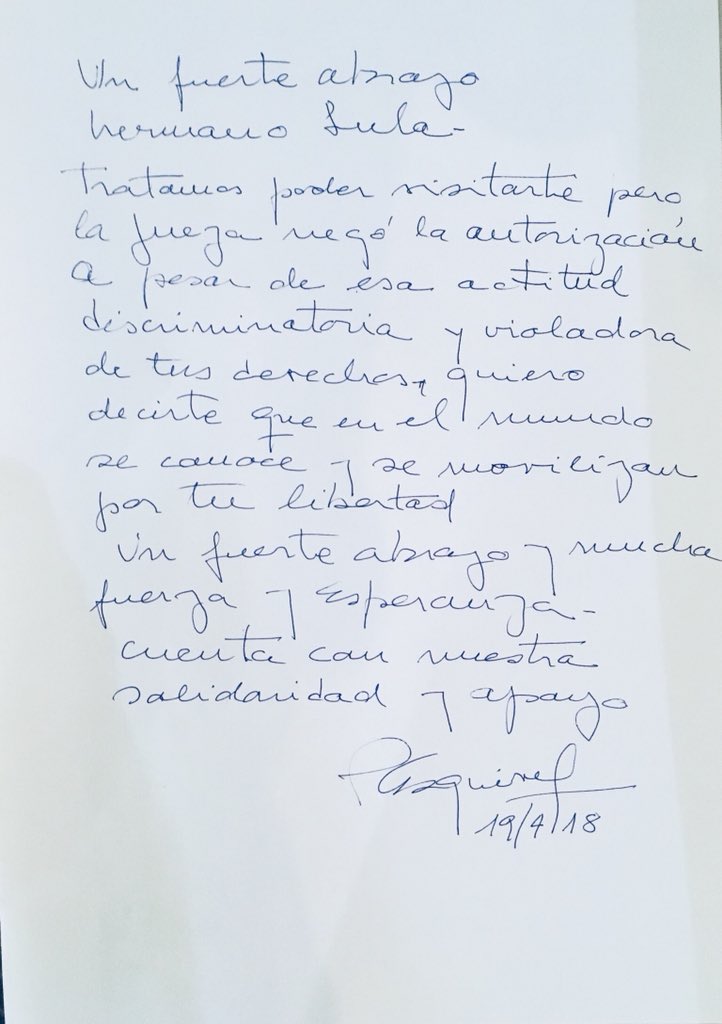 Un fuerte abrazo
hermano Lula-
Tratamos poder visitarte pero
la jueza negó la autorización
a pesar de esa actitud
discriminatoria y violadora
de tus derechos, quiero
decirte que en el mundo
se conoce y se movilizan
por tu libertad
Un fuerte abrazo y mucha
fuerza y Esperanza-
cuenta con nuestra
solidaridad y apoyo
PEsquivel
19/4/18